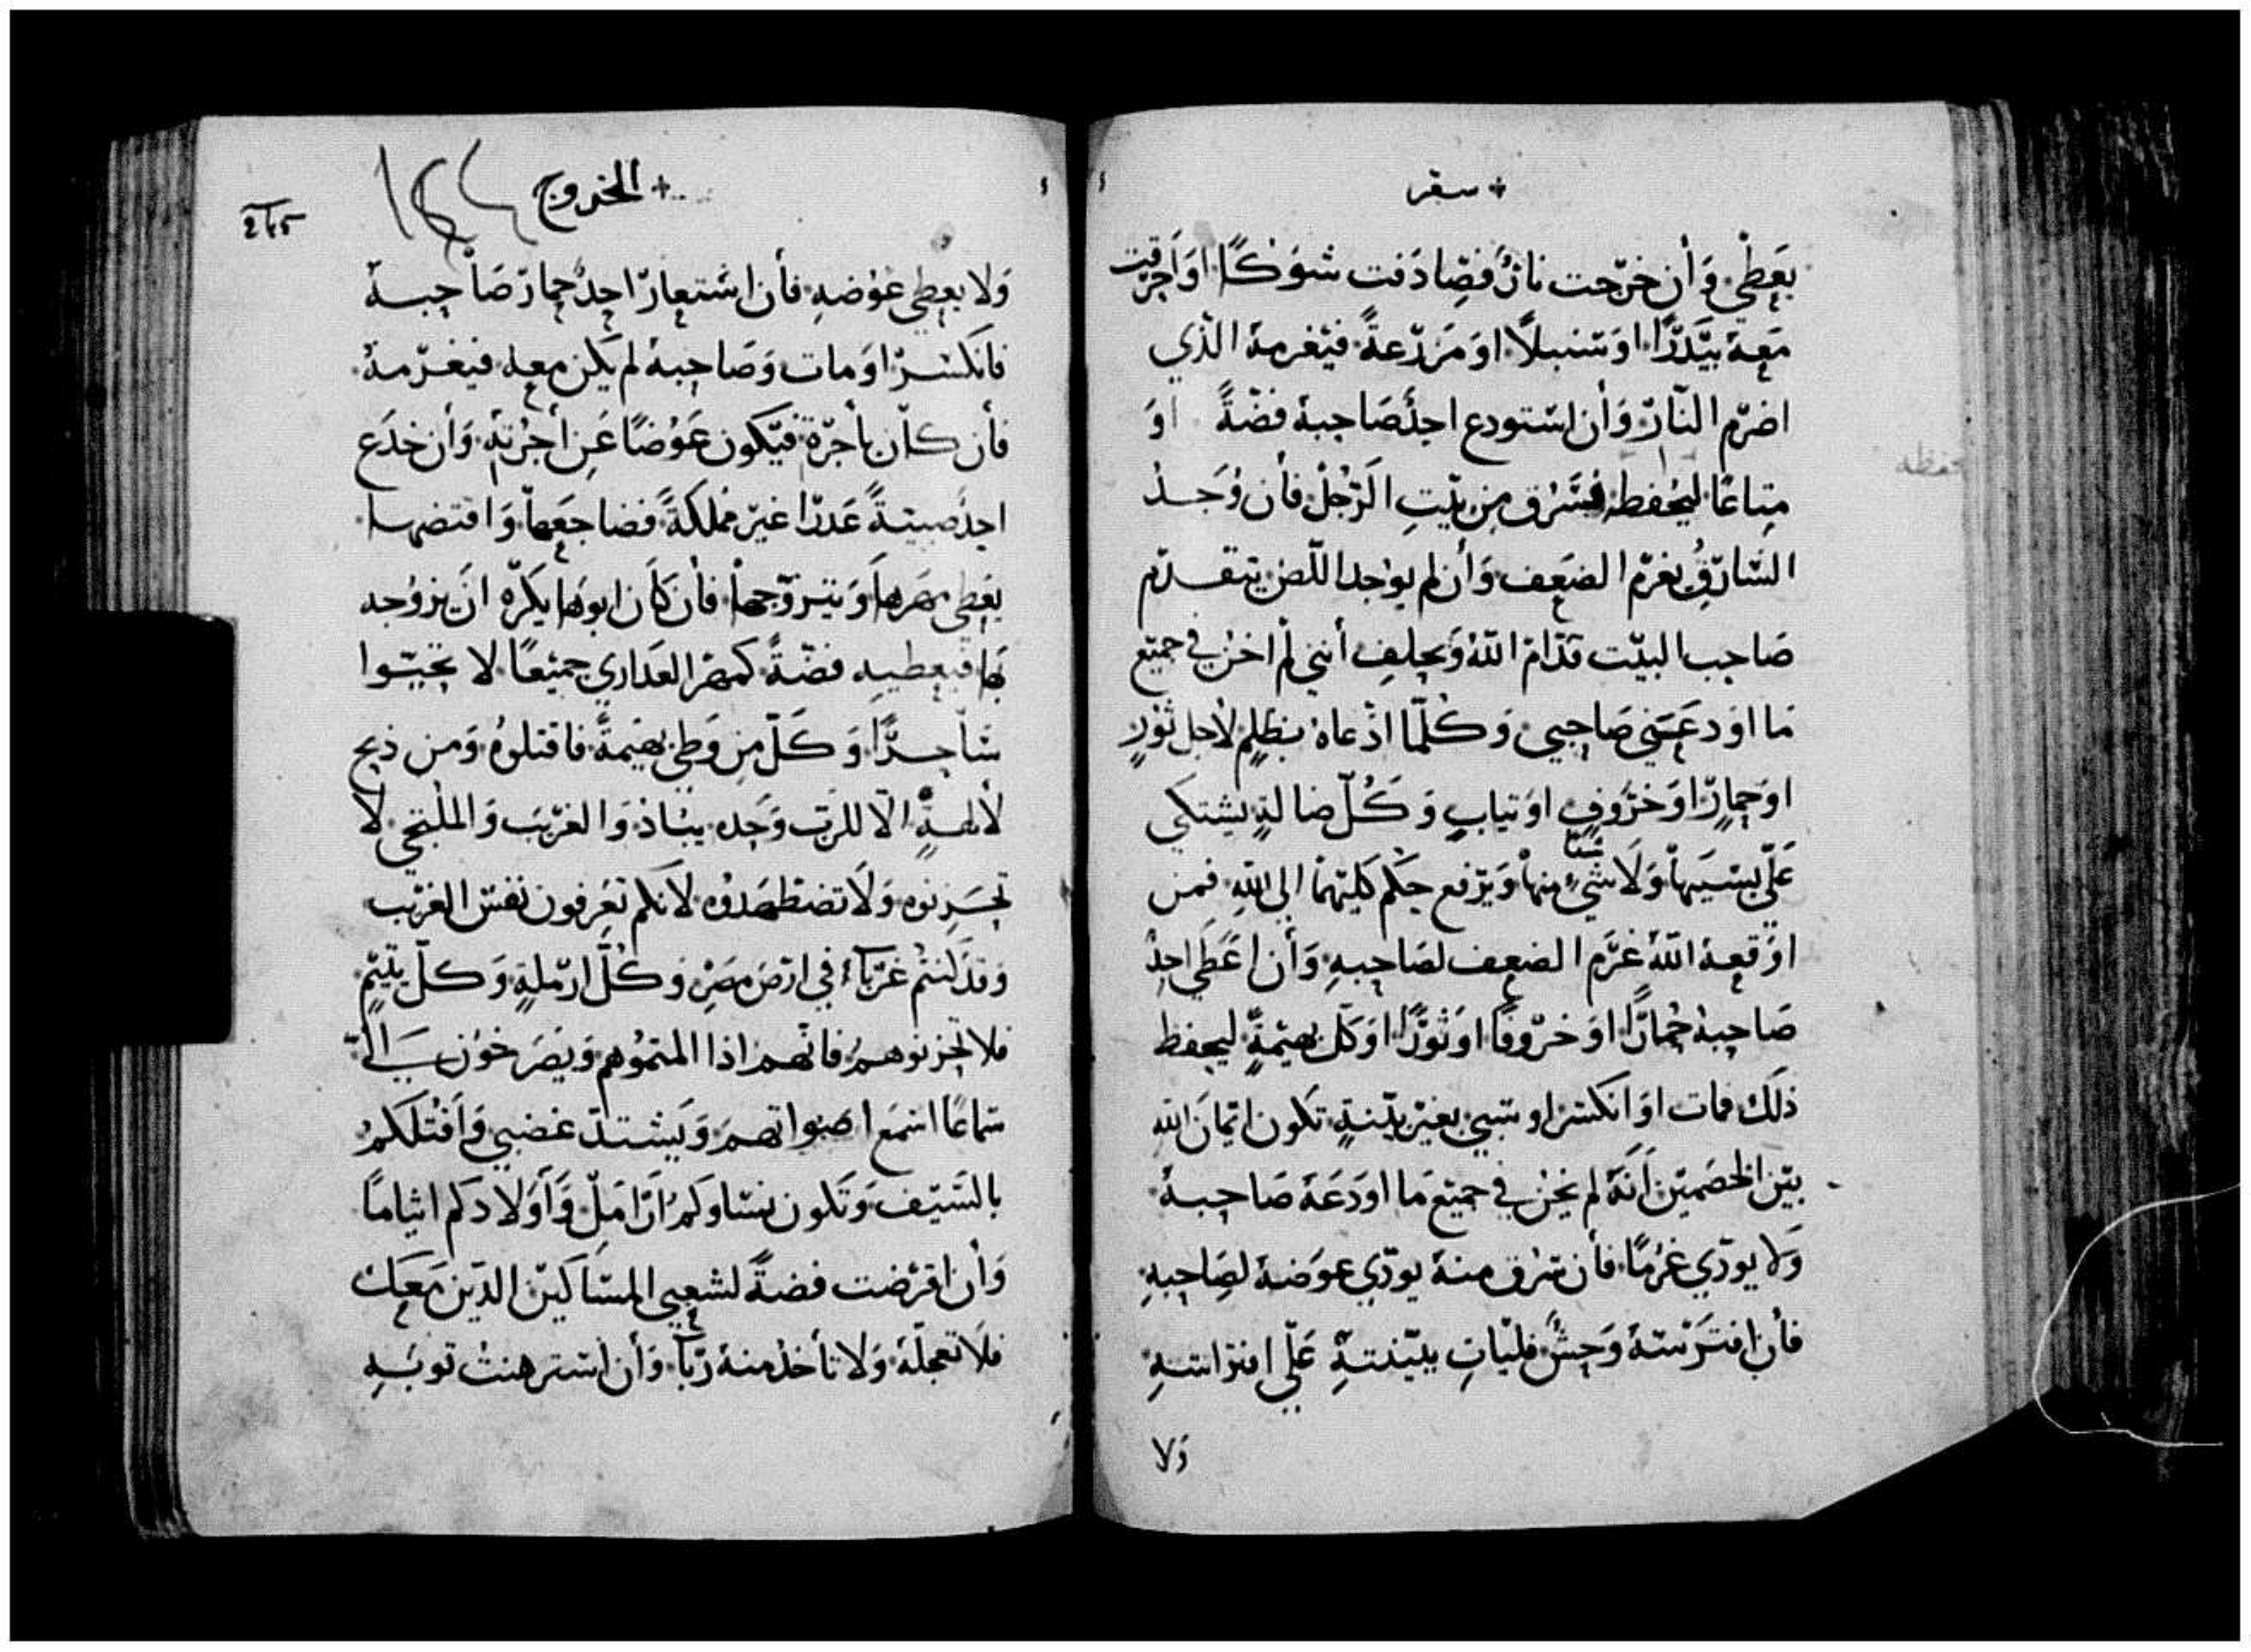 سفر
يعطي وأن خرجت نارٌ فصادفت شوكًا او احرقت
معه بيدرًا او سنبلاً او مزرعةً فيغرمه الذي
اضرم النار وأن استودع احدٌ صاحبه فضةً او
متاعًا ليحفظه فسرق من بيت الرجل فأن وُجد
السارق يغرم الضعف وأن لم يوجد اللص يتقدم
صاحب البيت قدام الله ويحلف أنني لم اخن في جميع
ما اودعني صاحبي وكلما ادعاه بظلمٍ لاجل ثورٍ
او حمارٍ او خروفٍ او تيابٍ وكل ضالةٍ يشتكي
علي بسببها ولا شيء منها ويرفع حكم كليهما الي الله فمن
اوقعه الله غرم الضعف لصاحبه وأن اعطي احدٌ
صاحبه حمارًا او خروفًا او ثورًا او كل بهيمةٍ ليحفظ
ذلك فمات او انكسر او سبي بغير بينةٍ تكون ايمان الله
بين الخصمين أنه لم يخن في جميع ما اودعه صاحبه
ولا يودي غرمًا فأن سرق منه يودي عوضه لصاحبه
فأن افترسه وحشٌ فليات ببينةٍ علي افتراسه
ولا
الخروج
ولا يعطي عوضه فأن استعار احدٌ حمار صاحبه
فانكسر او مات وصاحبه لم يكن معه فيغرمه
فأن كان بأجرة فيكون عوضًا عن أجرته وأن خدع
احدٌ صبيةً عدرا غير مملكةً فضاجعها وافتضها
يعطي مهرها ويتزوجها فأن كان ابوها يكره ان يزوجه
بها فيعطيه فضةً كمهر العداري جميعًا لا تحيوا
ساحرًا وكل من وطي بهيمةً فاقتلوه ومن ذبح
لألهةٍ الا للرب وحده يباد والغريب والملتجي لا
تحزنوه ولا تضطهدوه لانكم تعرفون نفس الغريب
وقد كنتم غربآء في ارض مصر وكل ارملةٍ وكل يتيمٍ
فلا تحزنوهم فانهم اذا المتموهم ويصرخون الي
سماعًا اسمع اصواتهم ويشتد غضبي واقتلكم
بالسيف وتكون نساوكم ارامل واولادكم ايتامًا
وأن اقرضت فضةً لشعبي المساكين الدين معك
فلا تعجله ولا تأخد منه ربًا وأن استرهنت توبه